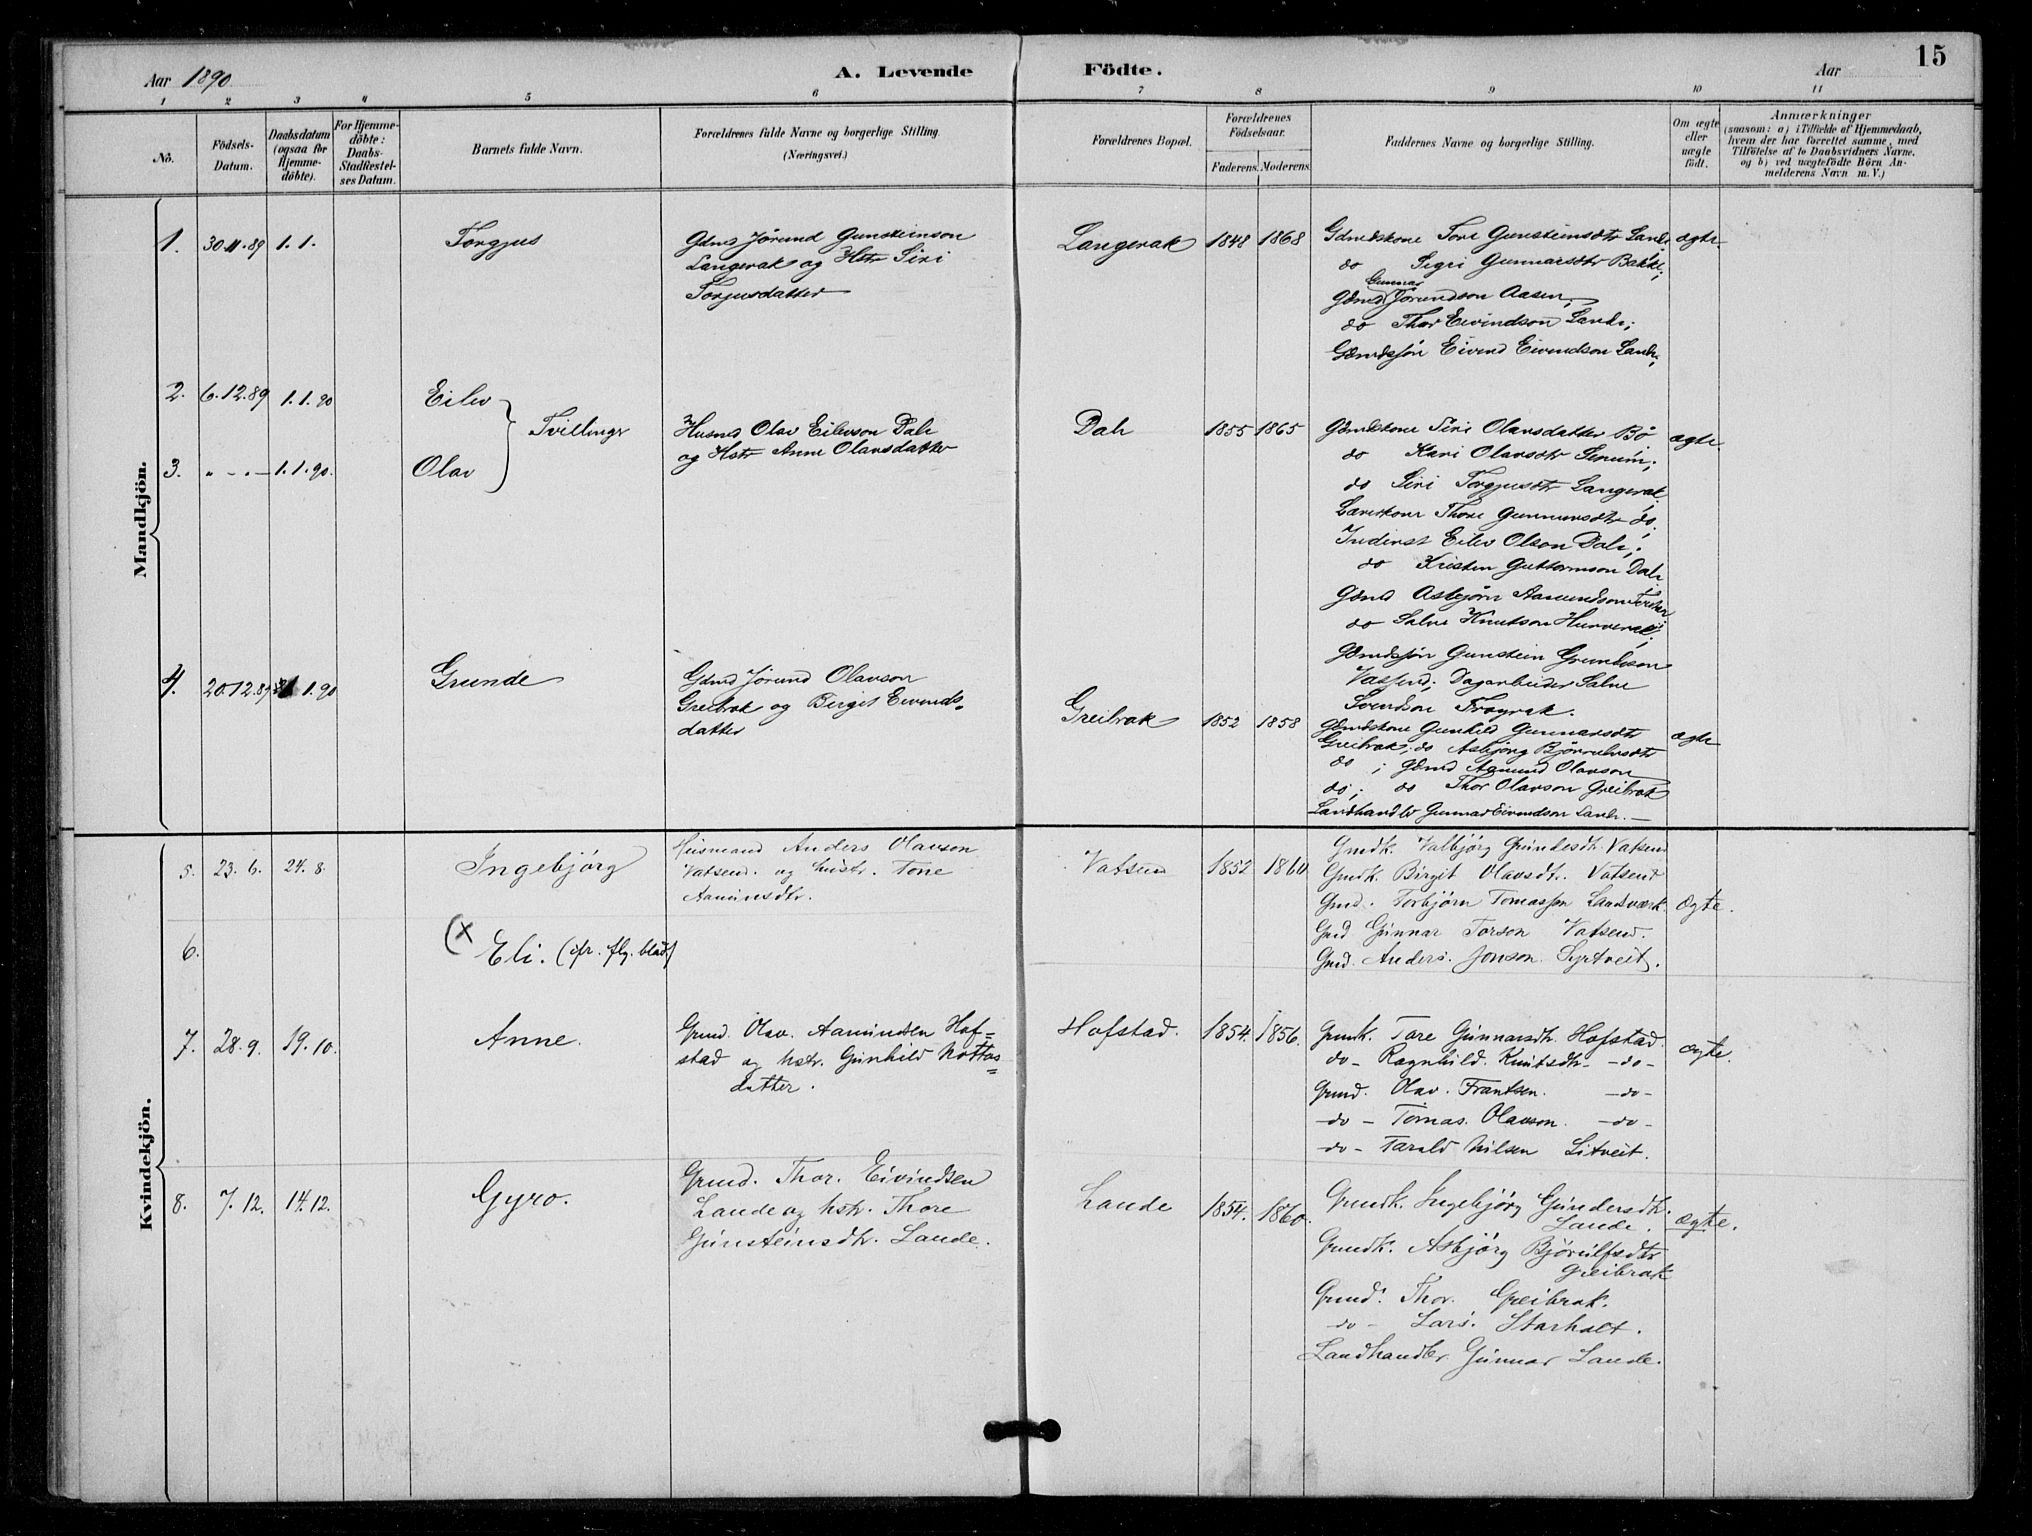 15
Aar 1890 A. Levende Födte. Aar
1 2 3 4 5 6 7 8 9 10 11
No.
Födsels-Datum.
Daabsdatum (ogsaa for Hjemme-döbte).
For Hjemme-döbte: Daabs-Stadfæstel-ses Datum.
Barnets fulde Navn.
Forældrenes fulde Navne og borgerlige Stilling. (Næringsvei.)
Forældrenes Bopæl.
Forældrenes Födselsaar.
Faderens. Moderens.
Faddernes Navne og borgerlige Stilling.
Om ægte eller uægte födt.
Anmærkninger
(saasom: a) i Tilfælde af Hjemmedaab,
hvem der har forrettet samme, med
Tilföielse af to Daabsvidners Navne,
og b) ved uægtefödte Börn An-
melderens Navn m. V.)
Mandkjön.
1. 30.11.89 1.1. Torgjus
Gdmd Jörund Gunsteinson
Langerak og Hstr Siri
Torjusdatter
Langerak 1848 1868
Gdmdskone Tore Gunsteinsdtr Lande
do Sigri Gunnarsdtr Bakke;
Gunnar
Gdmd Jörundson Aasen;
do Thor Eivindson Lande;
Gdmdssön Eivind Eivindson Lande;
ægte
2. 6.12.89 1.1.90 Eilev
Tvillinger
3. " - . - 1.1.90. Olav
Husmd Olav Eilevson Dale
og Hstr Anne Olavsdatter
Dale 1855 1865
Gdmdskone Siri Olavsdatter Bö
do Kari Olavsdtr Senum;
do Siri Torgjusdtr Langerak
Thore Gunnarsdtr do;
Inderst Eilev Olson Dale;
do Kristen Guttormson Dale
Gdmd Asbjörn Aamundson
do Salve Knutson
Gdmdssön Gunstein Grundeson
Vatsend; Dagarbeider Salve
Svendson
ægte.
4. 20.12.89 1.90 Grunde
Gdmd Jörund Olavson
Greibrak og Birgit Eivinds-
datter
Greibrak 1852 1858
Gdmdskone Gunhild Gunnarsdtr
Greibrak; do Asbjörg Björnulvsdtr
do ; Gdmd Aamund Olavson
do; do Thor Olavson Greibrak
Landhandler Gunnar Eivindson Lande. —
ægte
Kvindekjön.
5. 23.6. 24.8. Ingebjörg
Husmand Anders Olavson
Vatsend. og hustr. Tone
Aamunsdtr.
Vatsend 1852 1860
Gmdk. Valbjörg Grundesdtr. Vatsend
Gmdk. Birgit Olavsdtr. Vatsend
Gmd. Torbjörn Tomasson Landsværk.
Gmd Gunnar Torson Vatsend.
Gmd. Anders. Jonson Syrtveit.
Ægte.
6. (x Eli. (cfr. flg. blad.)
7. 28.9. 19.10. Anne.
Grmd. Olav. Aamundsen Hof=
stad og hstr. Gunhild Nottas=
datter.
Hofstad. 1854. 1856.
Grmdk. Tore Gunnarsdtr. Hofstad.
do - Ragnhild. Knutsdtr - do -
Grmd. Olav. Frantsen. - do -
- do - Tomas. Olavson. - do -
- do - Tarald Nilsen Litveit.
ægte.
8. 7.12. 14.12. Gyro.
Grmd. Thor. Eivindsen
Lande og hstr. Thore
Gunsteinsdtr. Lande.
Lande 1854. 1860.
Grmdk. Ingebjörg Gundersdtr.
Lande.
Grmdk. Asbjörg Björnulfsdtr
Greibrak
Grmd. Thor. Greibrak.
- do - Lars. Starholt.
Landhandler Gunnar Lande.
ægte.